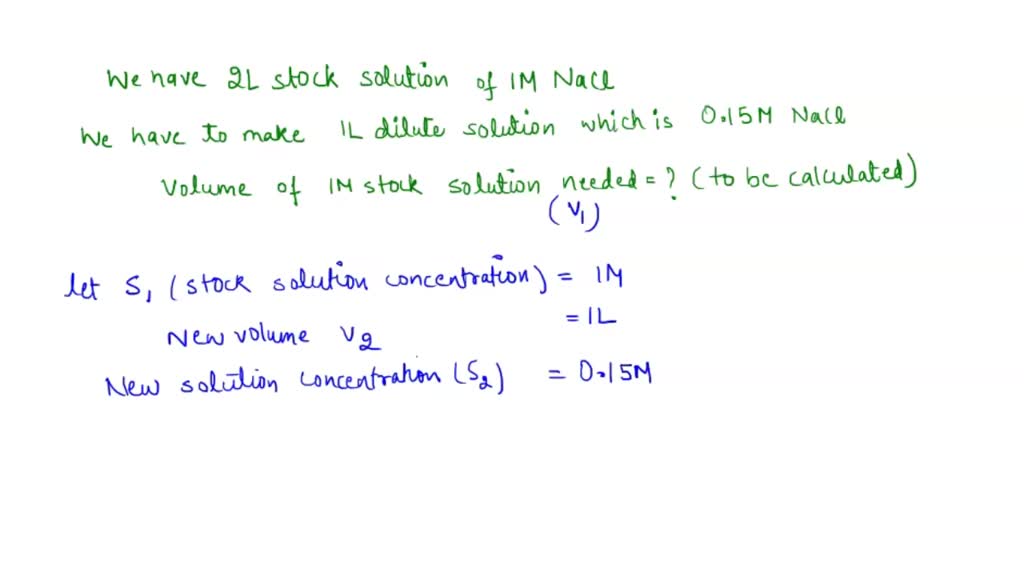 We have 2L stock solution of 1M NaCl
We have to make 1L dilute solution which is 0.15M NaCl
Volume of 1M stock solution needed = ? (to be calculated)
(V1)
let S1 (stock solution concentration) = 1M
New volume V2 = 1L
New solution concentration (S2) = 0.15M